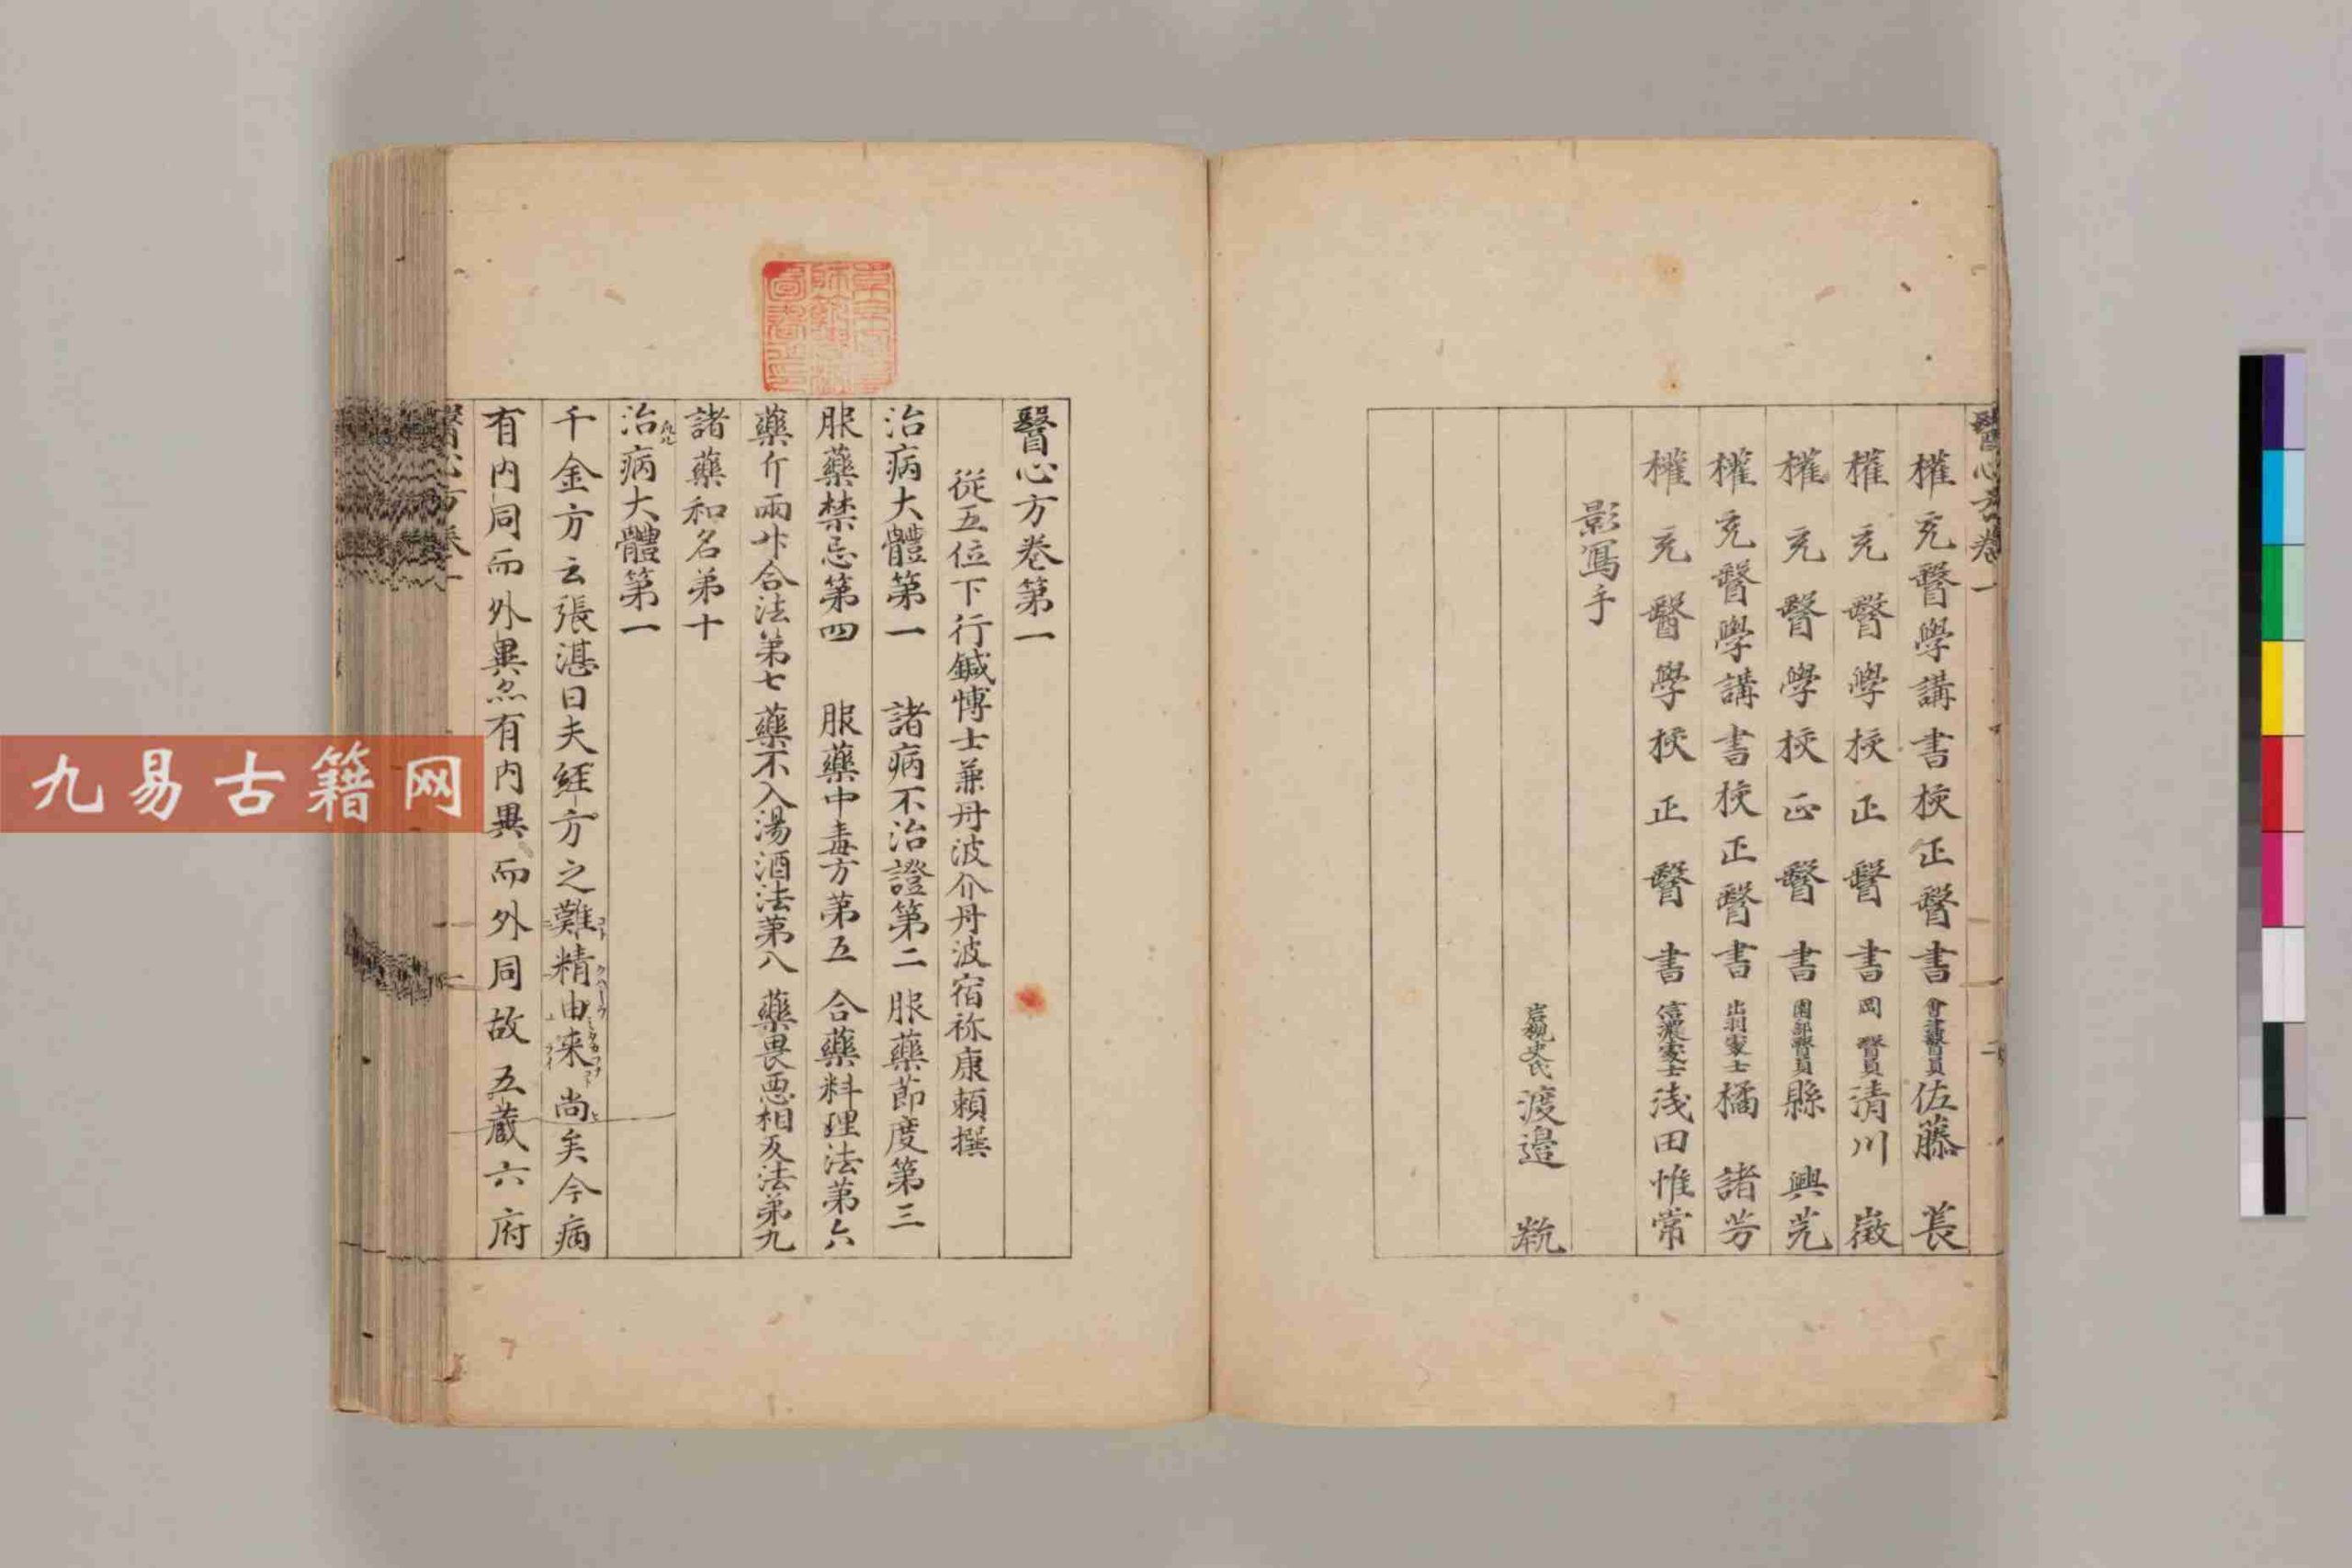 醫心方卷一
權充醫學講書校正醫書 會津醫員 佐藤 萇
權充醫學校正醫書 岡 醫員 清川 徽
權充醫學校正醫書 園部醫員 縣 興元
權充醫學講書校正醫書 出羽處士 橘 諸芳
權充醫學校正醫書 信濃處士 浅田惟常
影寫手
岩槻史氏 渡邉
醫心方卷第一
従五位下行鍼博士兼丹波介丹波宿祢康頼撰
治病大體第一 諸病不治證第二 服藥節度第三
服藥禁忌第四 服藥中毒方第五 合藥料理法第六
藥斤兩升合法第七 藥不入湯酒法第八 藥畏悪相反法第九
諸藥和名第十
治病大體第一
千金方云張湛曰夫経方之難精由来尚矣今病
有内同而外異亦有内異而外同故五蔵六府
醫心方卷一
九易古籍网